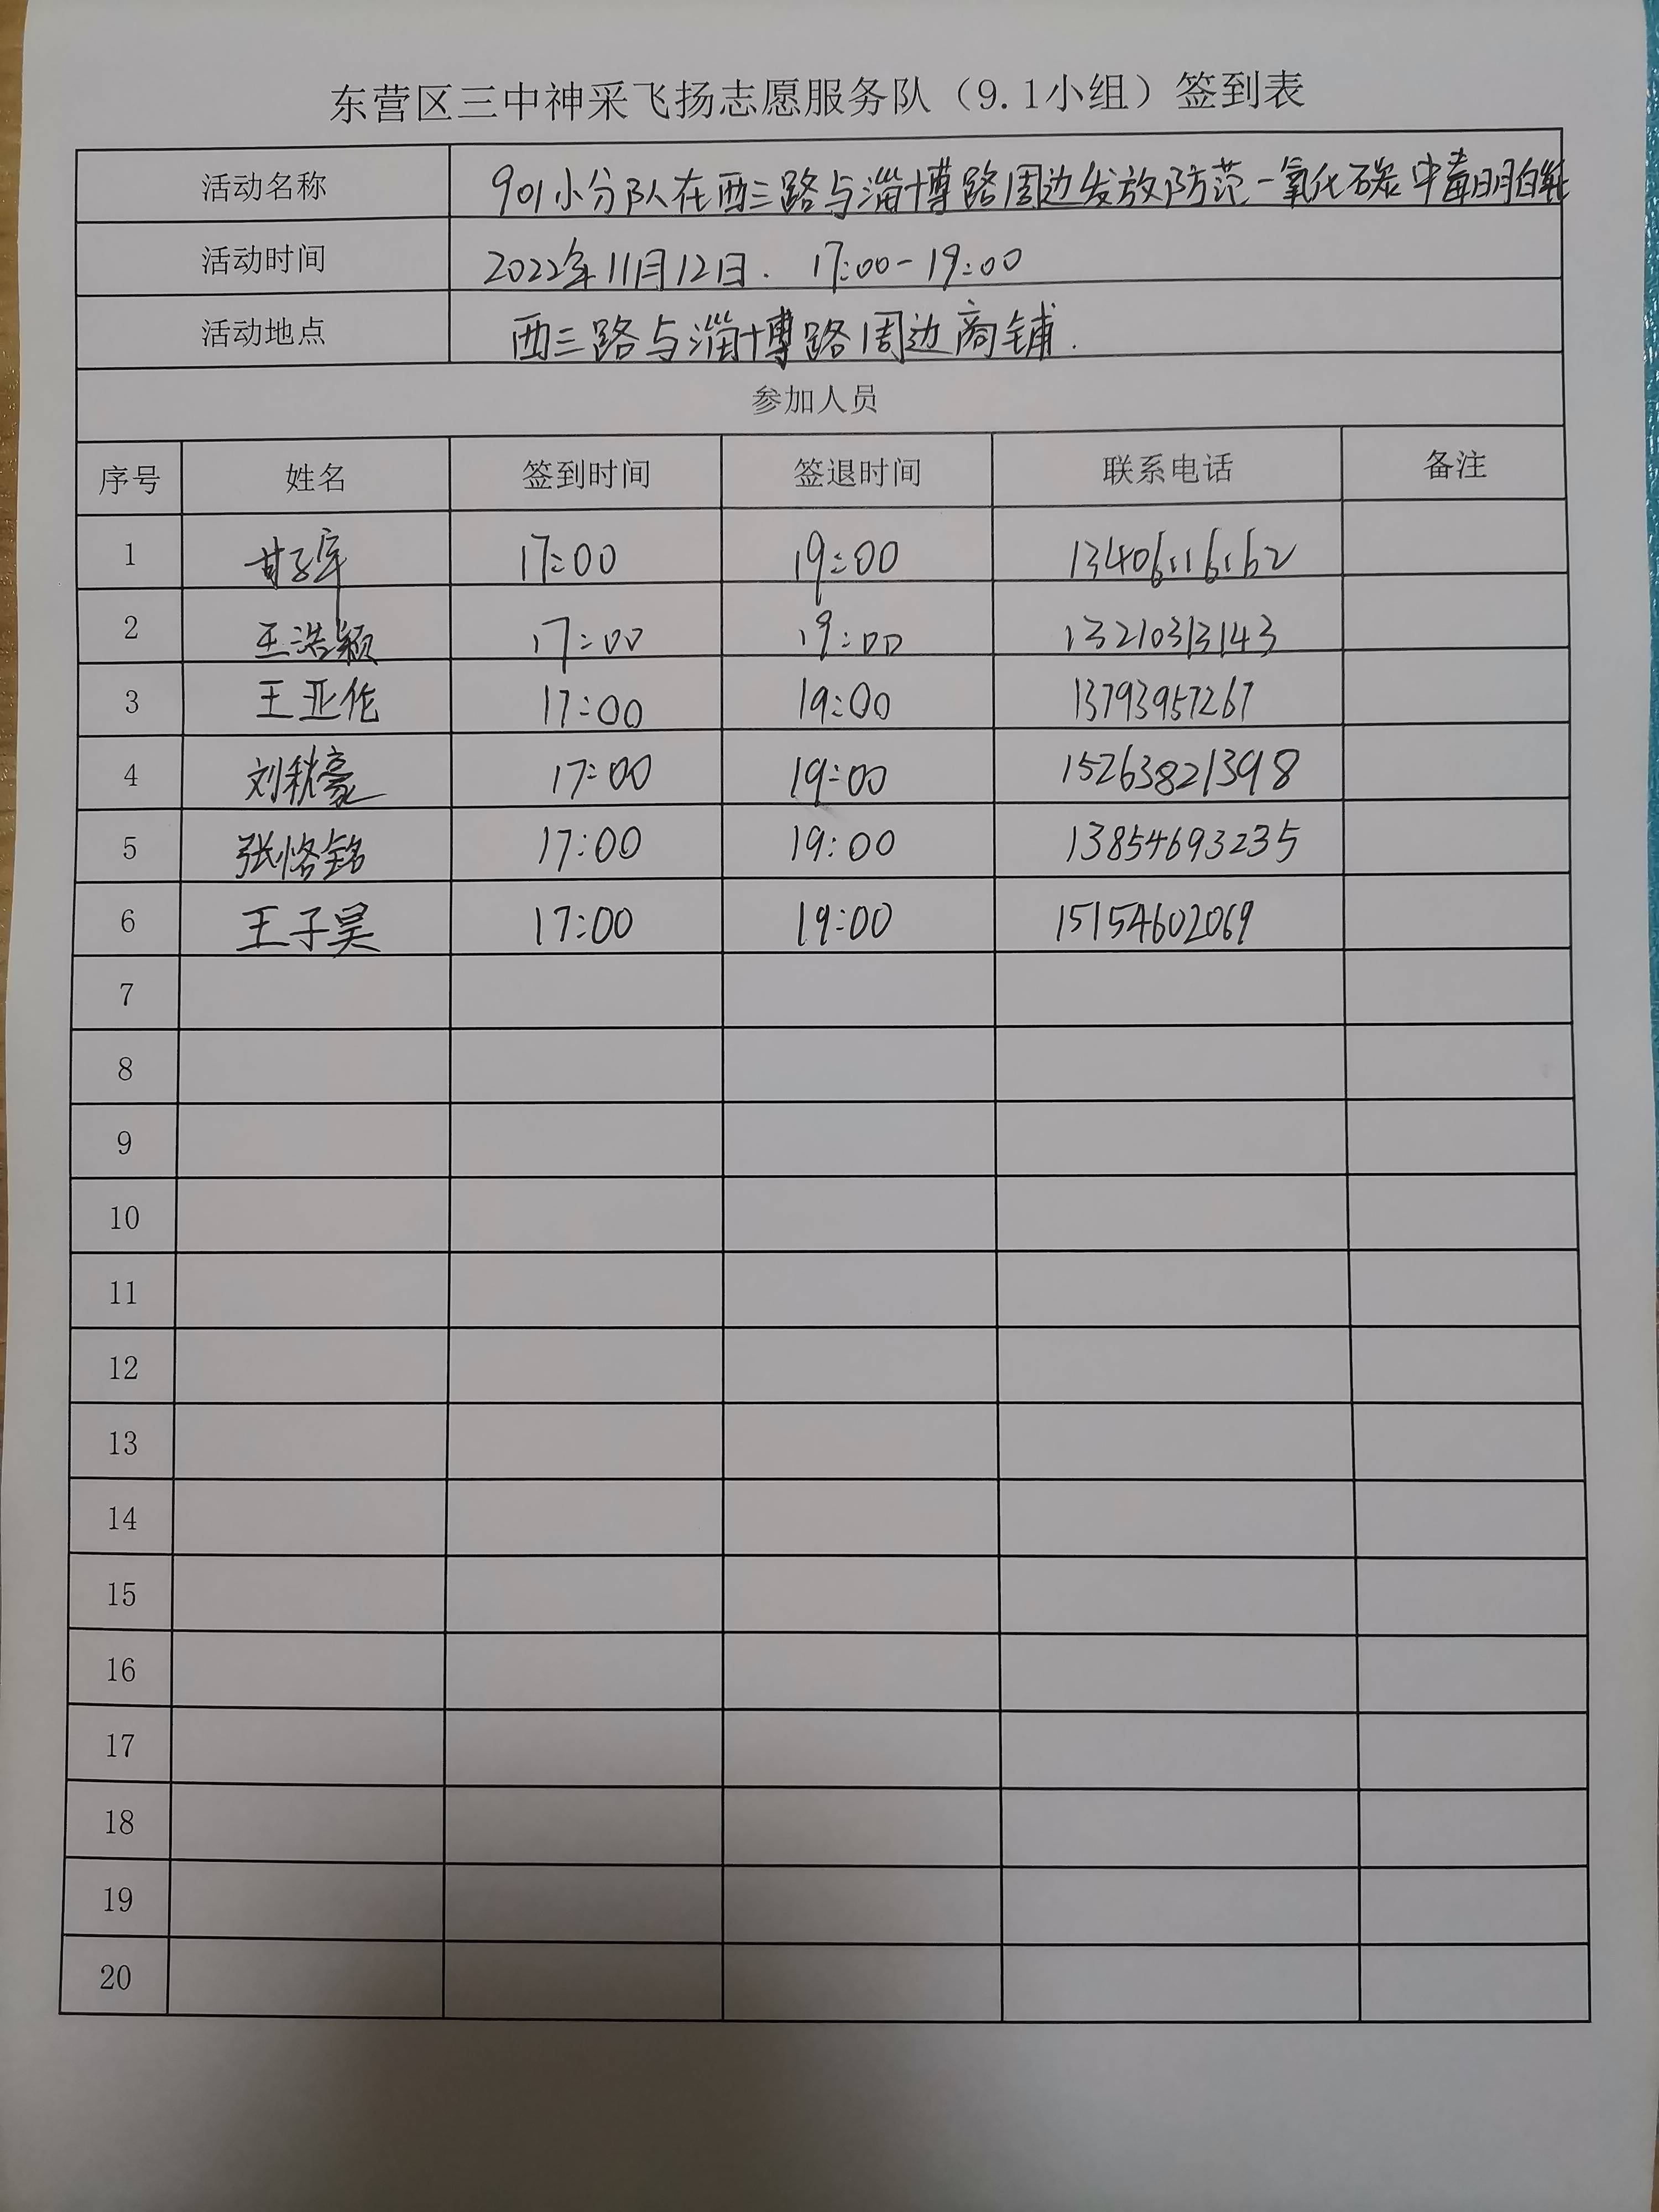 东营区三中神采飞扬志愿服务队（9.1小组）签到表
活动名称 901小分队在西三路与淄博路周边发放防范一氧化碳中毒明白纸
活动时间 2022年11月12日. 17:00-19:00
活动地点 西三路与淄博路周边商铺.
参加人员
序号 姓名 签到时间 签退时间 联系电话 备注
1 17:00 19:00 13406116162
2 王浩颖 17:00 19:00 13210313143
3 王亚伦 17:00 19:00 13793957267
4 刘秋豪 17:00 19:00 15263821398
5 张恪铭 17:00 19:00 13854693235
6 王子昊 17:00 19:00 15154602069
7
8
9
10
11
12
13
14
15
16
17
18
19
20